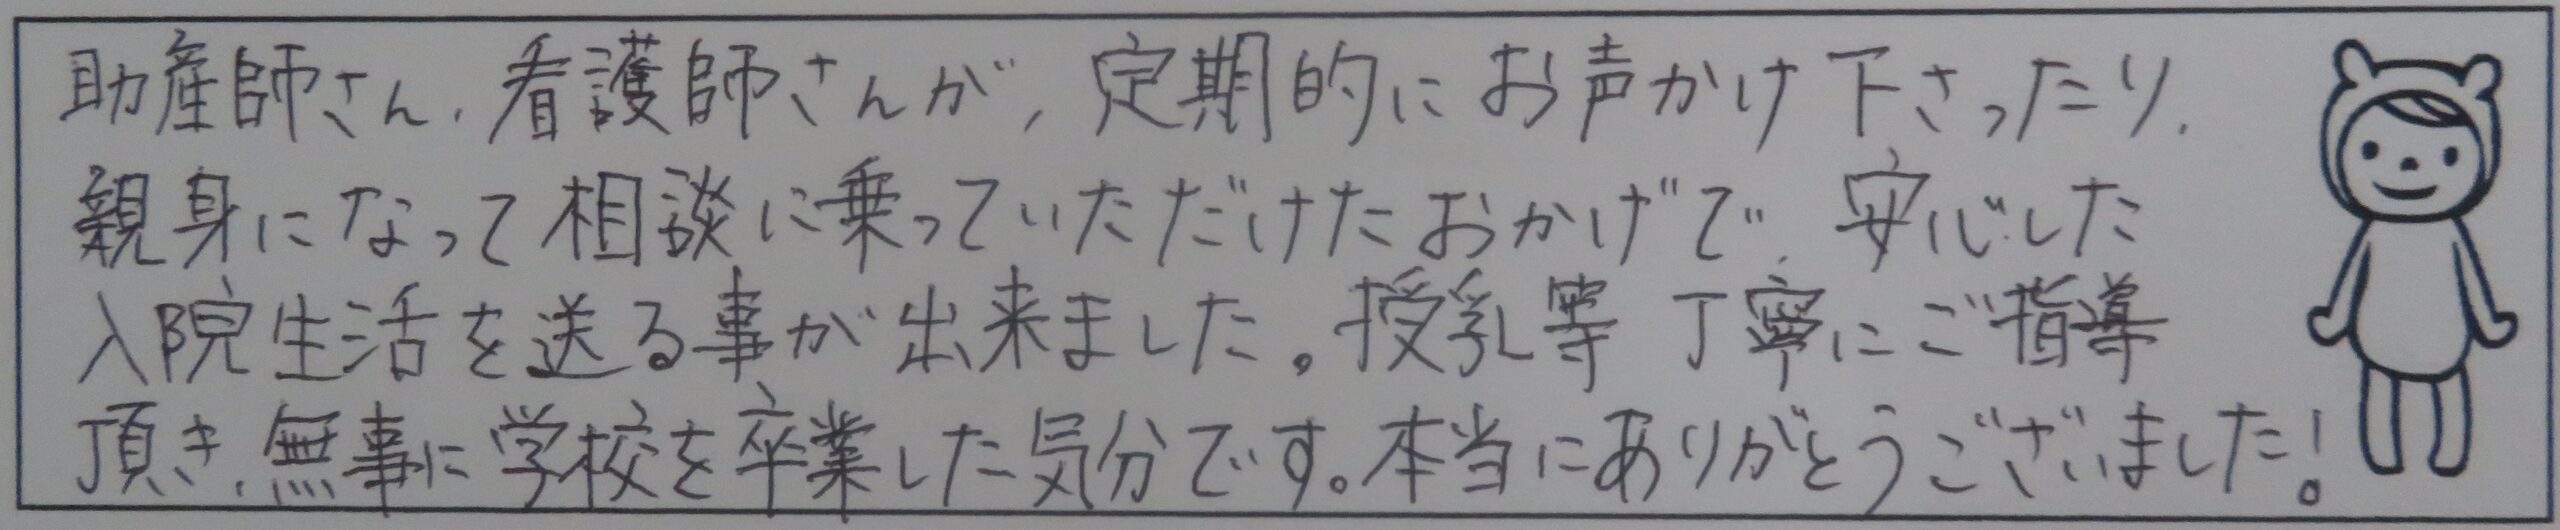 助産師さん、看護師さんが、定期的にお声かけ下さったり、
親身になって相談に乗っていただけたおかげで、安心した
入院生活を送る事が出来ました。授乳等 丁寧にご指導
頂き、無事に学校を卒業した気分です。本当にありがとうございました!